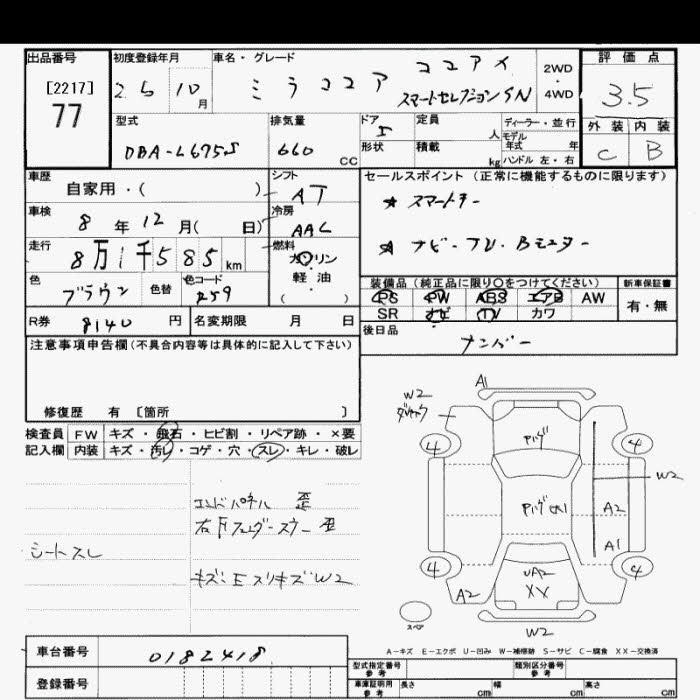 出品番号
[2217]
77
初度登録年月
25 10月
車名・グレード
ミラココア ココアX
スマートセレクションSN
2WD
4WD
評価点
3.5
外装 内装
C B
型式
DBA-L675S
排気量
660 CC
ドア
5
形状
定員 人
積載 kg
ディーラー・並行
モデル年式 年
ハンドル 左・右
車歴
自家用・( )
シフト
AT
車検
8年12月( 日)
冷房
AAC
走行
8万1千585km
燃料
ガソリン
軽・油
( )
色
ブラウン
色替
色コード
R59
セールスポイント (正常に機能するものに限ります)
★ スマートキー
★ ナビ・TV・Bモニター
装備品 (純正品に限り〇をつけてください)
新車保証書
PS PW ABS エアB AW
SR ナビ TV カワ
有・無
R券
8140円
名変期限 月 日
後日品
ナンバー
注意事項申告欄(不具合内容等は具体的に記入して下さい)
修復歴 有 [箇所 ]
検査員 FW キズ・飛石・ヒビ割・リペア跡・×要
記入欄 内装 キズ・汚レ・コゲ・穴・スレ・キレ・破レ
エンドパネル 歪
シートスレ
キズ、E スリキズW2
A1
W2
4
4
W2
A2
A1
4
4
UA2
XX
A2
W2
スペア
A-キズ E-エクボ U-凹み W-補修跡 S-サビ C-腐食 XX-交換済
車台番号
0182418
登録番号
型式指定番号
参考
類別区分番号
参考
車庫証明用
参考
長さ cm 幅 cm 高さ cm